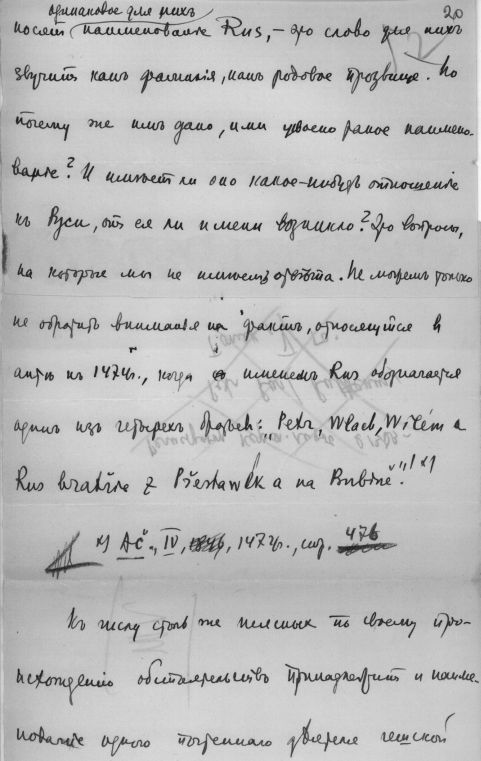 20
одинаковое для нихъ
носятъ наименованіе Rus, – это слово для нихъ
звучитъ какъ фамилія, какъ родовое прозвище. Но
почему же имъ дано, ими усвоено такое наимено-
ваніе? И имѣетъ ли оно какое-нибудь отношеніе
къ Руси, отъ ея ли имени возникло? Это вопросы,
на которые мы не имѣемъ отвѣта. Не можемъ только
не обратить вниманія на фактъ, относящійся и
актъ къ 1474г., когда именемъ Rus обозначается
одинъ изъ четырехъ братьевъ: "Petr, Wlach, Wilém a
Rus bratřie z Přestawlk a na Bubině"! x)
x) AČ., IV, 1474г., стр. 476
Къ числу столь же неясныхъ по своему про-
исхожденію обстоятельствъ принадлежитъ и наиме-
нованіе одного почтеннаго дѣятеля чешской